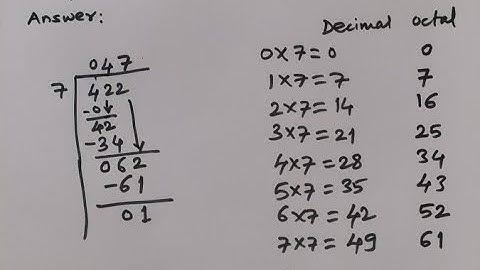 Answer:
Decimal octal
047
7 422
-0
42
-34
062
-61
01
0×7=0 0
1×7=7 7
2×7=14 16
3×7=21 25
4×7=28 34
5×7=35 43
6×7=42 52
7×7=49 61